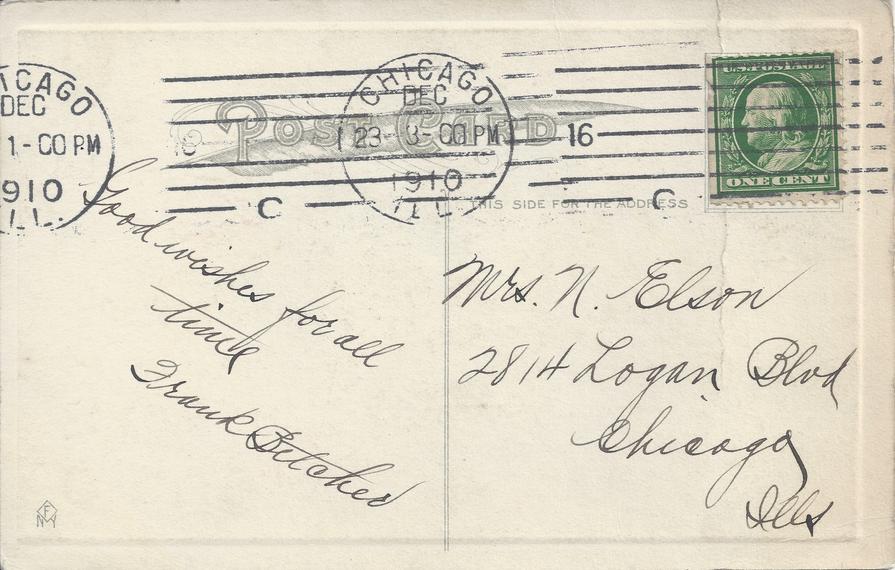 CHICAGO
DEC
1-00 PM
1910
ILL.
C
POST CARD
CHICAGO
DEC
23 3-00 PM
1910
ILL.
16
C
U.S. POSTAGE
ONE CENT
THIS SIDE FOR THE ADDRESS
Good wishes for all
time
Frank
Mrs. N. Elson
2814 Logan Blvd
Chicago
Ills
F
NY